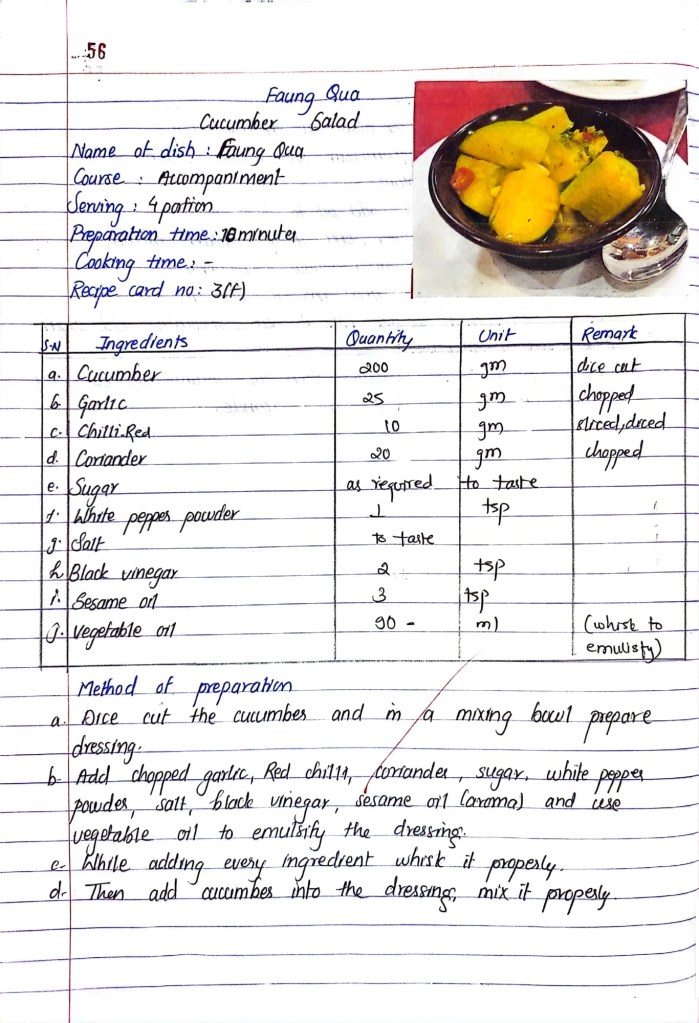 56
Faung Qua
Cucumber Salad
Name of dish : Faung Qua
Course : Accompaniment
Serving : 4 portion
Preparation time : 10 minutes
Cooking time : -
Recipe card no : 3(f)
S.N Ingredients Quantity Unit Remark
a. Cucumber 200 gm dice cut
b. Garlic 25 gm chopped
c. Chilli-Red 10 gm sliced, diced
d. Coriander 20 gm chopped
e. Sugar as required to taste
f. White pepper powder 1 tsp
g. Salt to taste
h. Black vinegar 2 tsp
i. Sesame oil 3 tsp
j. Vegetable oil 90 - ml (whisk to
emulsify)
Method of preparation
a. Dice cut the cucumber and in a mixing bowl prepare
dressing.
b- Add chopped garlic, Red chilli, coriander, sugar, white pepper
powder, salt, black vinegar, sesame oil (aroma) and use
vegetable oil to emulsify the dressing.
c- While adding every ingredient whisk it properly.
d- Then add cucumber into the dressing, mix it properly.